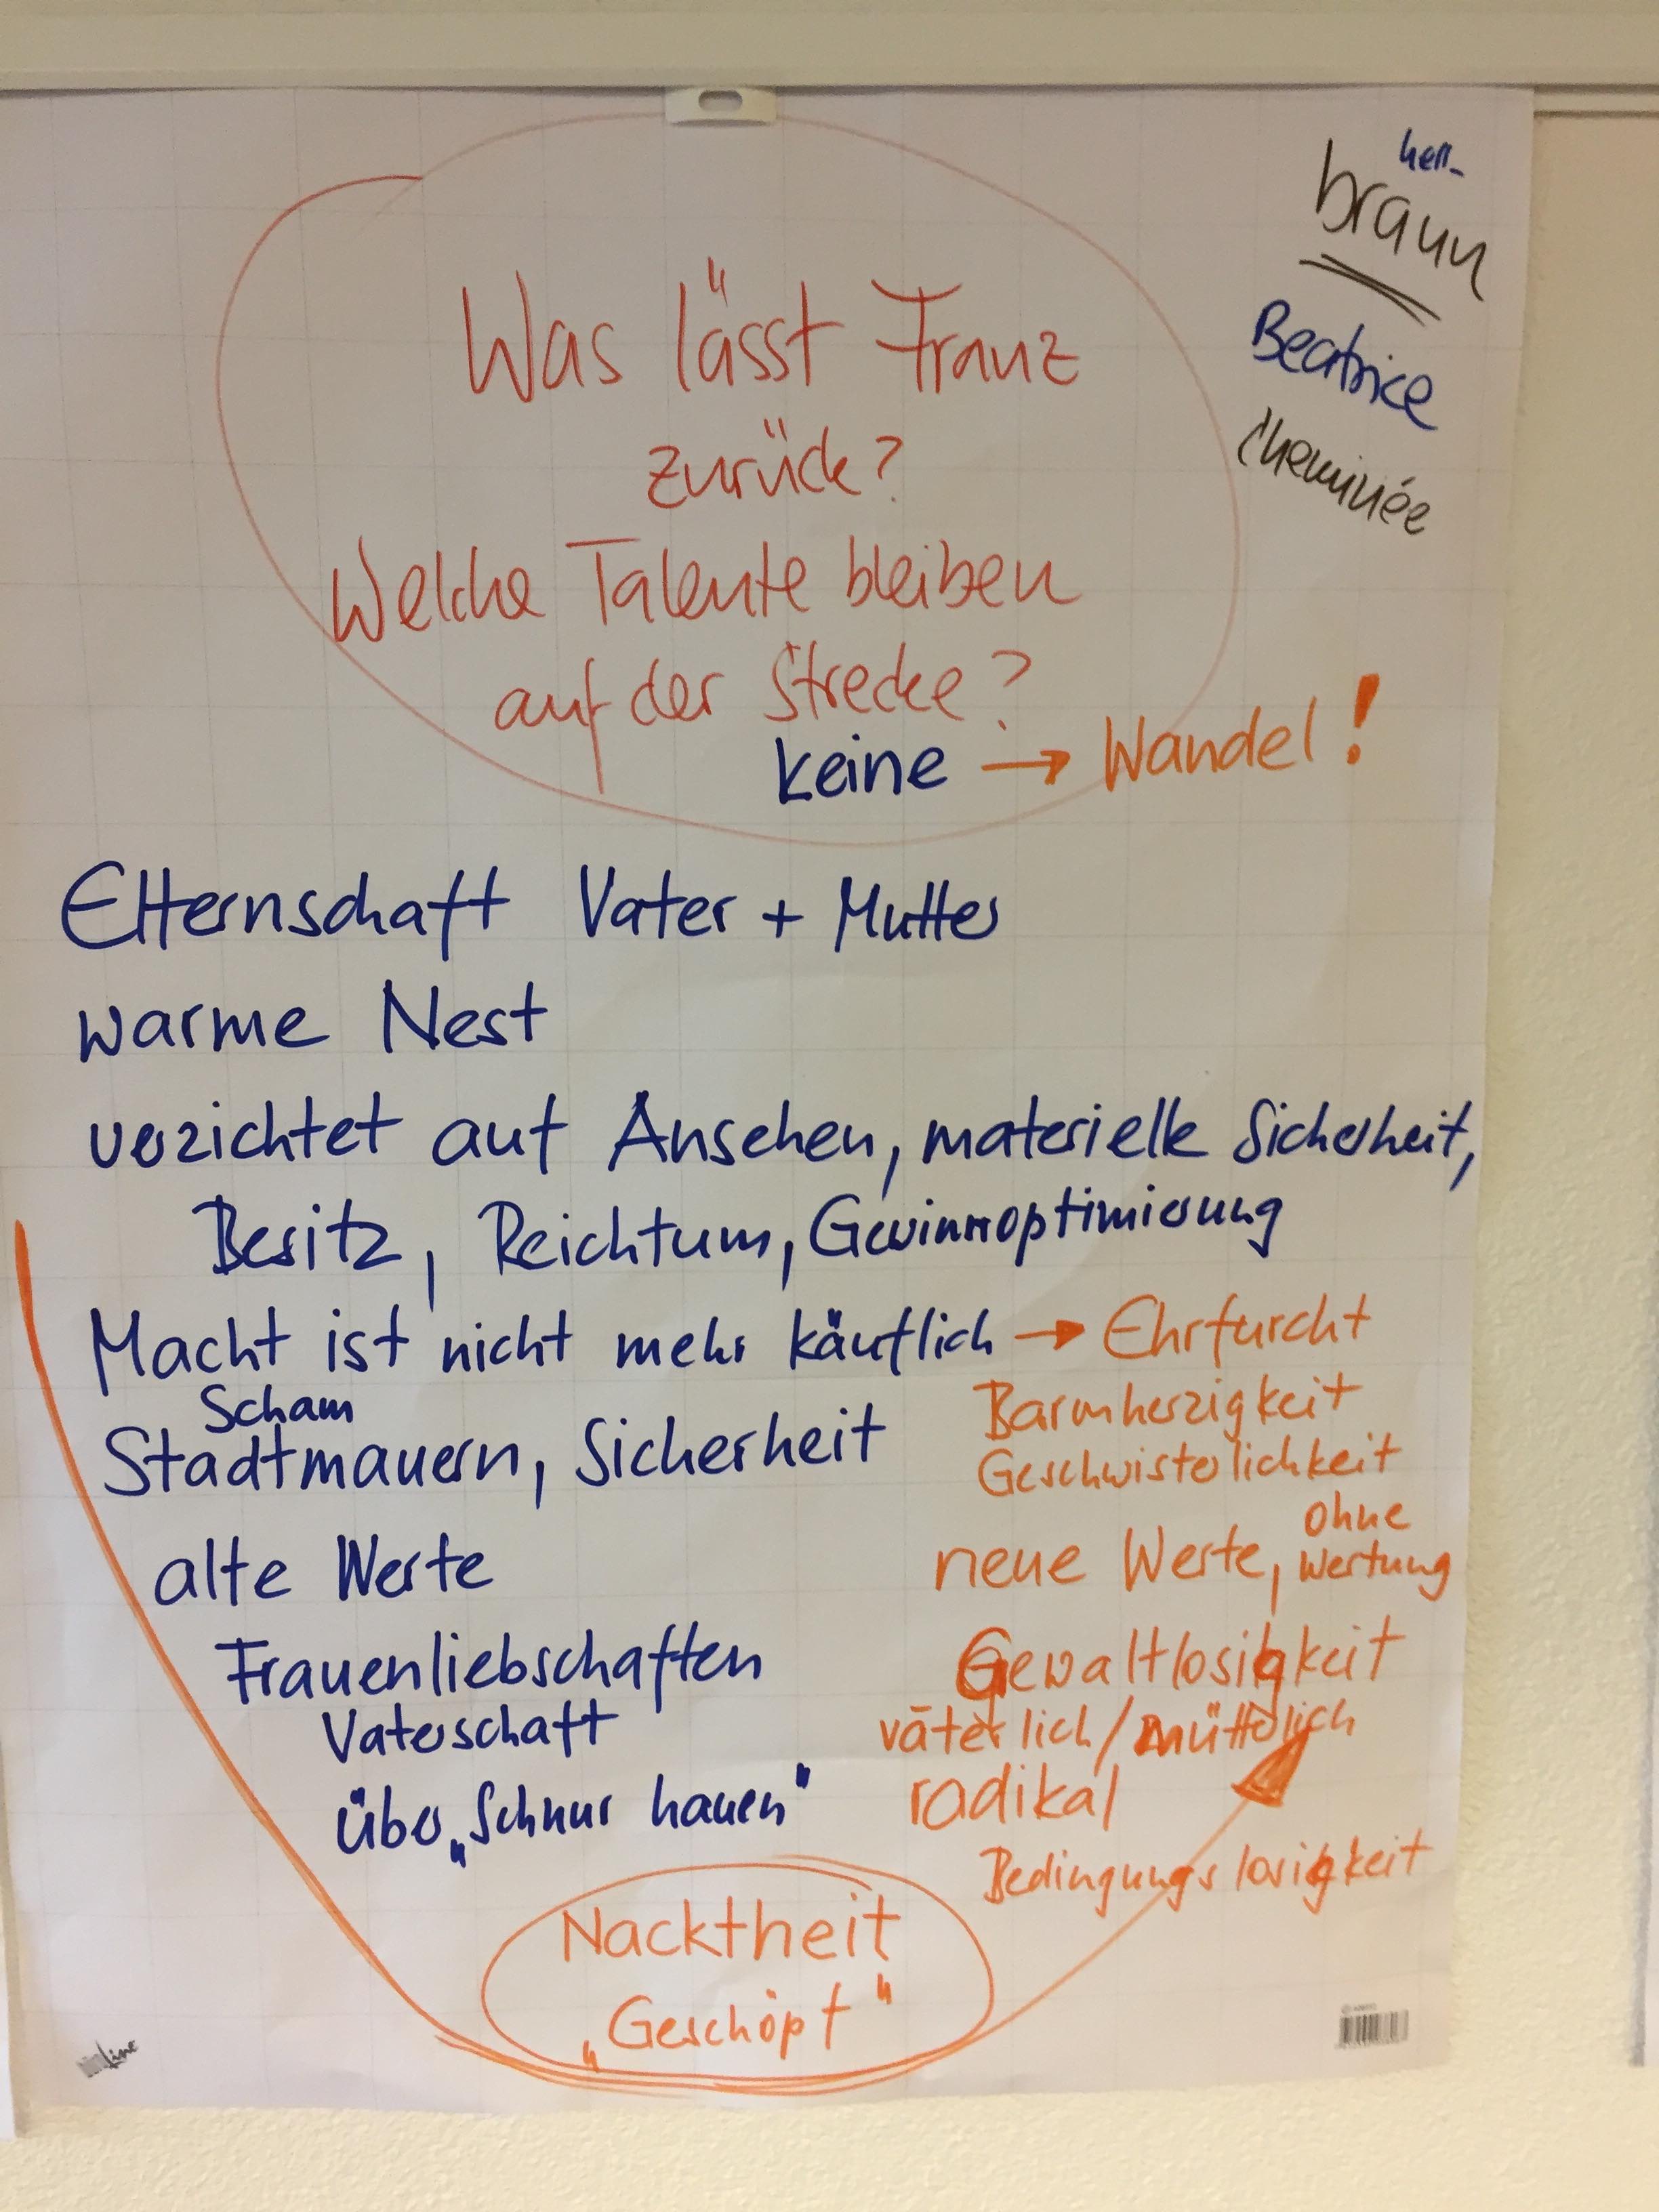 hell-
braun
Beatrice
Cheminée
Was lässt Franz
zurück?
Welche Talente bleiben
auf der Strecke?
keine → Wandel!
Elternschaft Vater + Mutter
warme Nest
verzichtet auf Ansehen, materielle Sicherheit,
Besitz, Reichtum, Gewinnoptimierung
Macht ist nicht mehr käuflich → Ehrfurcht
Scham
Barmherzigkeit
Stadtmauern, Sicherheit
Geschwisterlichkeit
alte Werte
neue Werte, ohne Wertung
Frauenliebschaften
Gewaltlosigkeit
Vaterschaft
väterlich/mütterlich
über „Schnur hauen"
radikal
Bedingungslosigkeit
Nacktheit
„Geschöpf"